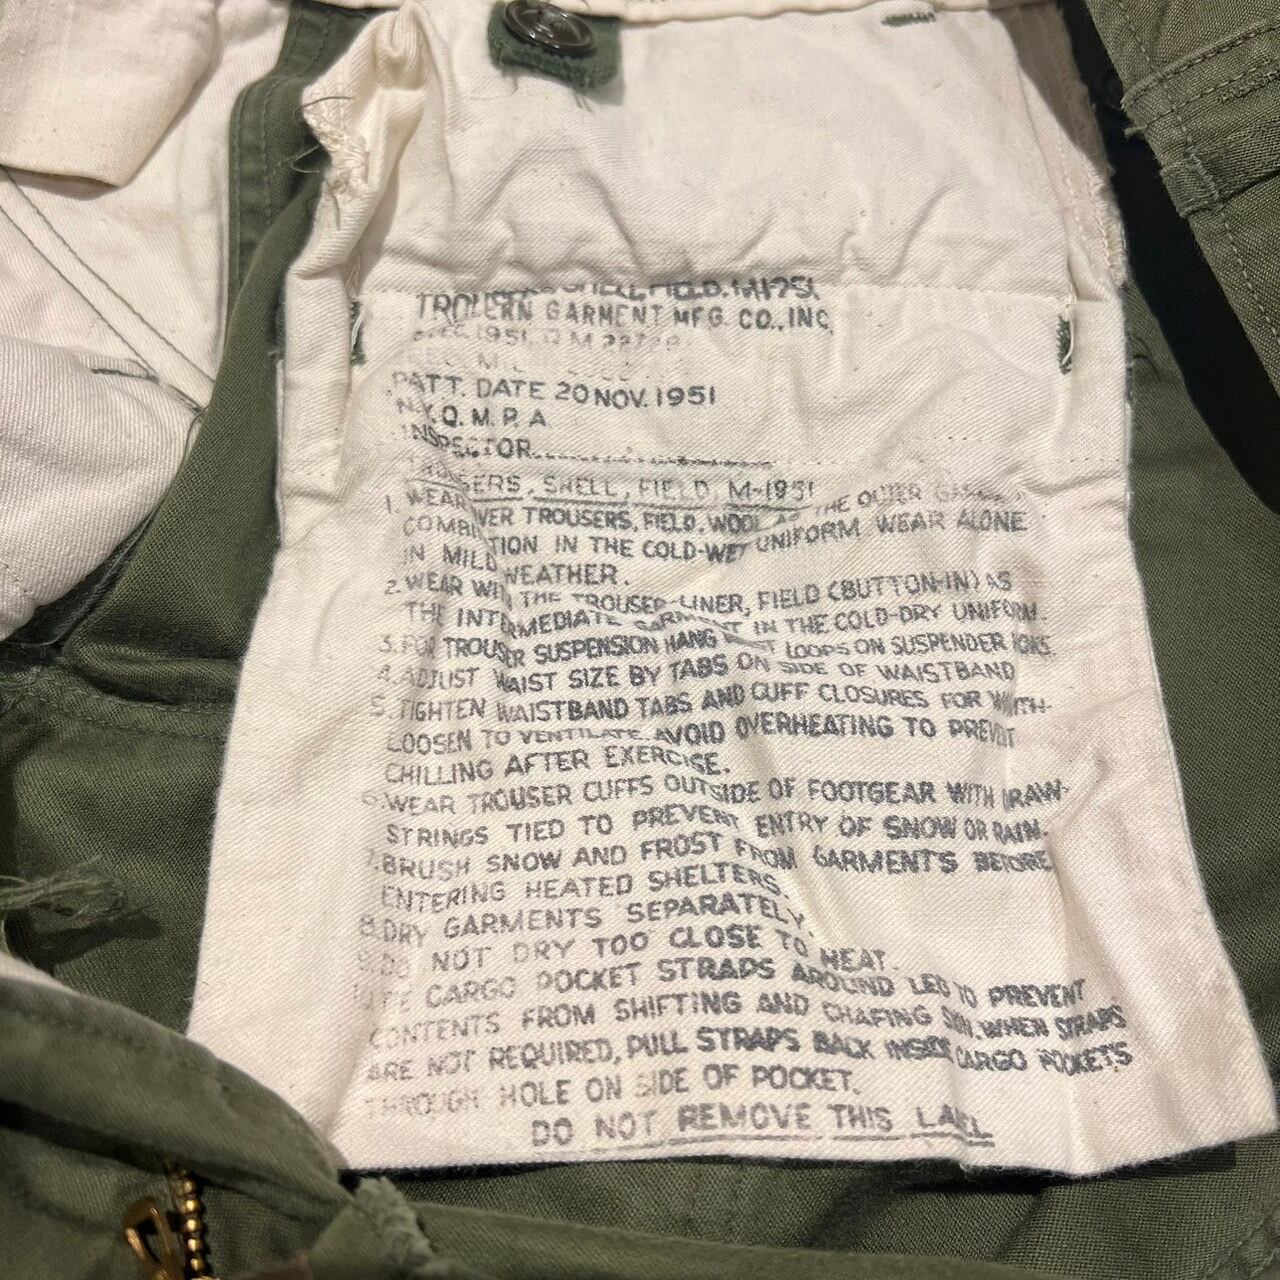 SHELL, FIELD, M-1951
GARMENT MFG. CO., INC.
1951 Q M
PATT. DATE 20 NOV. 1951
N.Y.Q.M.P.A
INSPECTOR
TROUSERS, SHELL, FIELD, M-1951
1. WEAR OVER TROUSERS, FIELD, WOOL AS THE OUTER
COMBINATION IN THE COLD-WET UNIFORM. WEAR ALONE
IN MILD WEATHER.
2. WEAR WITH THE TROUSER-LINER, FIELD (BUTTON-IN) AS
THE INTERMEDIATE GARMENT IN THE COLD-DRY UNIFORM.
3. FOR TROUSER SUSPENSION HANG LOOPS ON SUSPENDER
4. ADJUST WAIST SIZE BY TABS ON SIDE OF WAISTBAND
5. TIGHTEN WAISTBAND TABS AND CUFF CLOSURES FOR
LOOSEN TO VENTILATE. AVOID OVERHEATING TO PREVENT
CHILLING AFTER EXERCISE.
6. WEAR TROUSER CUFFS OUTSIDE OF FOOTGEAR WITH DRAW-
STRINGS TIED TO PREVENT ENTRY OF SNOW OR RAIN.
7. BRUSH SNOW AND FROST FROM GARMENTS BEFORE
ENTERING HEATED SHELTERS.
8. DRY GARMENTS SEPARATELY.
9. DO NOT DRY TOO CLOSE TO HEAT.
CARGO POCKET STRAPS AROUND LEG TO PREVENT
CONTENTS FROM SHIFTING AND CHAFING SKIN. WHEN STRAPS
ARE NOT REQUIRED, PULL STRAPS BACK INSIDE CARGO POCKETS
THROUGH HOLE ON SIDE OF POCKET.
DO NOT REMOVE THIS LABEL